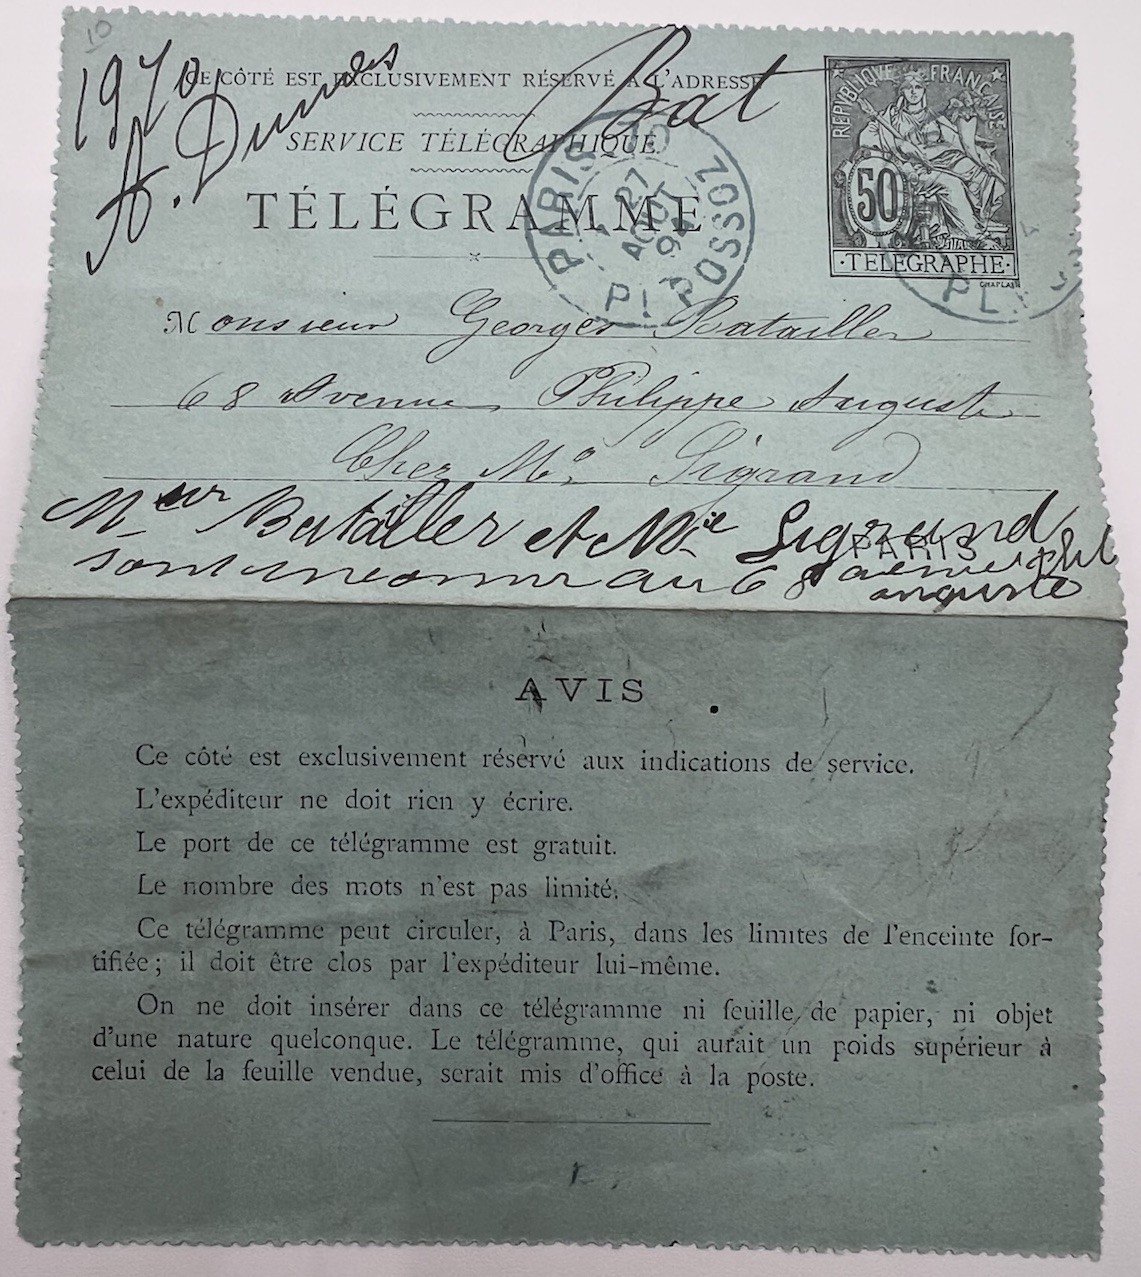 10
1970
A. Dumas
CE CÔTÉ EST EXCLUSIVEMENT RÉSERVÉ A L'ADRESSE
SERVICE TÉLÉGRAPHIQUE.
TÉLÉGRAMME
PARIS 70
27
AOUT
94
PL. POSSOZ
REPUBLIQUE FRANCAISE
50
·TELEGRAPHE·
CHAPLAIN
Monsieur Georges Batailler
68 Avenue Philippe Auguste
Chez Mr Sigrand
Meur Batailler et Mie Sigrand
PARIS
sont inconnu au 68 avenue phil
auguste
AVIS
Ce côté est exclusivement réservé aux indications de service.
L'expéditeur ne doit rien y écrire.
Le port de ce télégramme est gratuit.
Le nombre des mots n'est pas limité.
Ce télégramme peut circuler, à Paris, dans les limites de l'enceinte for-
tifiée; il doit être clos par l'expéditeur lui-même.
On ne doit insérer dans ce télégramme ni feuille de papier, ni objet
d'une nature quelconque. Le télégramme, qui aurait un poids supérieur à
celui de la feuille vendue, serait mis d'office à la poste.